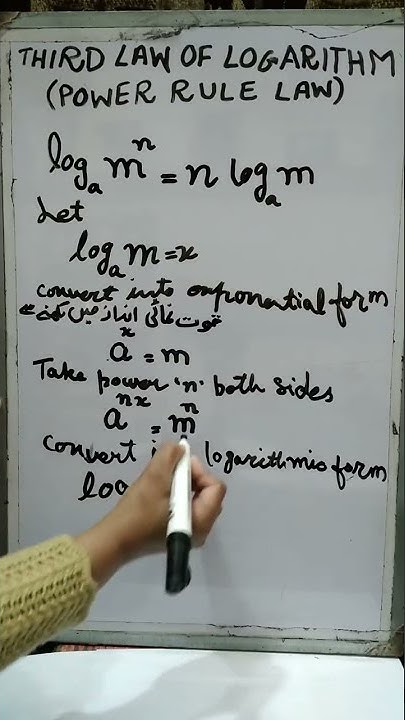 THIRD LAW OF LOGARITHM
(POWER RULE LAW)
logₐ mⁿ = n logₐ m
Let
logₐ m = x
convert into exponential form
قوت نمائی انداز میں لکھنے سے
aˣ = m
Take power 'n' both sides
aⁿˣ = mⁿ
convert i logarithmic form
log